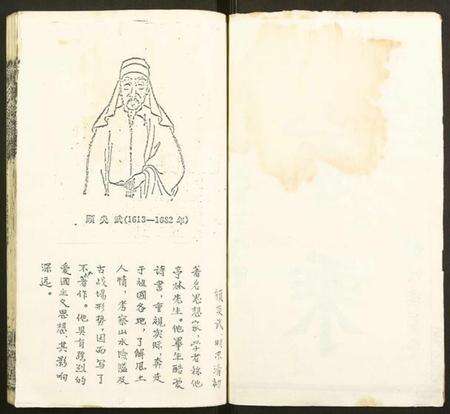 顾炎武(1613—1682年)
顾炎武,明末清初
著名思想家,学者称他
亭林先生。他毕生酷爱
诗書,重视实际,奔走
于祖国各地,了解风土
人情,考察山水险隘及
古战场形势,因而写了
不少著作。他具有强烈的
爱国主义思想,其影响
深远。